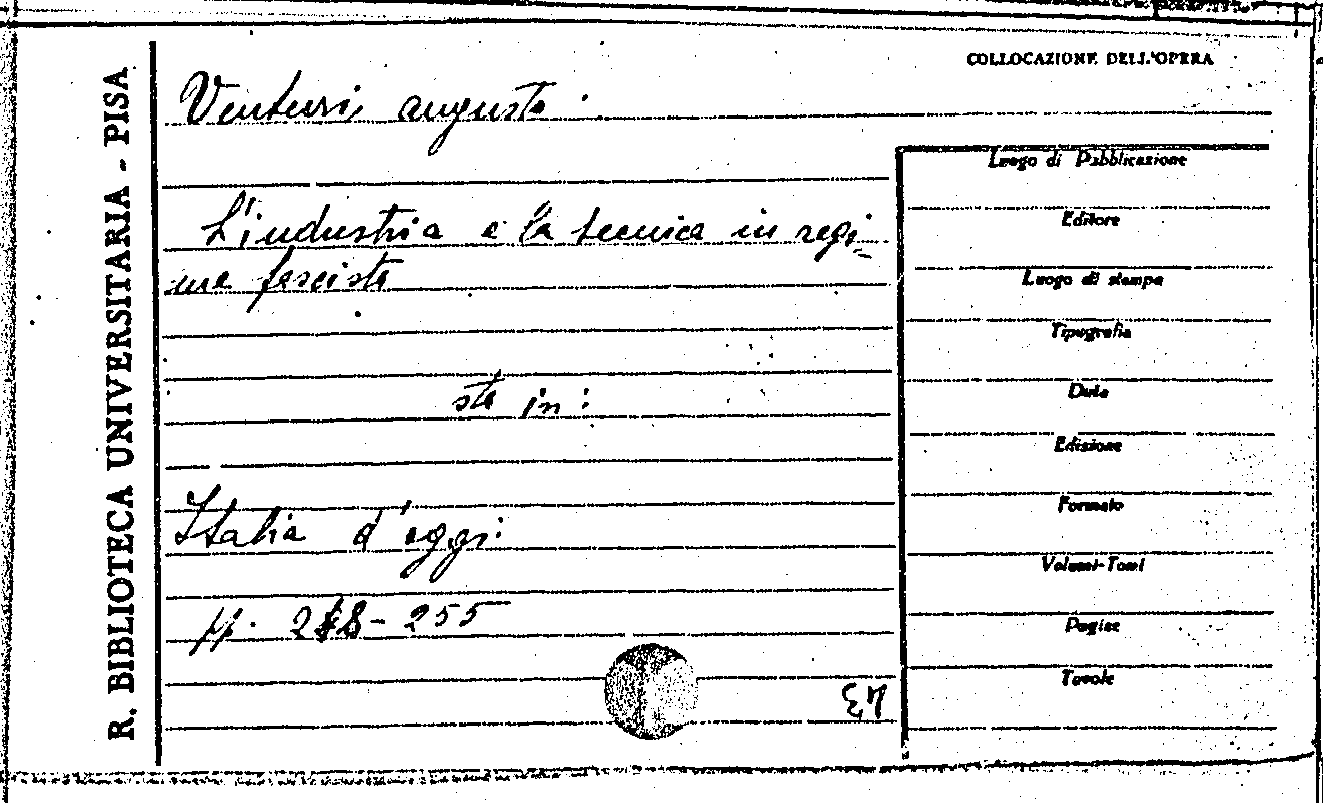 R. BIBLIOTECA UNIVERSITARIA - PISA
COLLOCAZIONE DELL'OPERA
Venturi, augusto.
L'industria e la tecnica in regi-
me fascista
sta in:
Italia d'oggi.
pp. 248-255
Luogo di Pubblicazione
Editore
Luogo di stampa
Tipografia
Data
Edizione
Formato
Volumi-Tomi
Pagine
Tavole